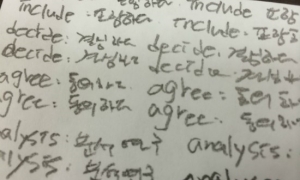 include 포함하다 include
include : 포함하다 include : 포함
decide : 결심하다 decide : 결심하다
decide : 결심하다 decide : 결심하
agree : 동의하다 agree : 동의
agree : 동의하다 agree : 동의하다
analysis : 분석 연구 analysis :
analysis : 분석연구